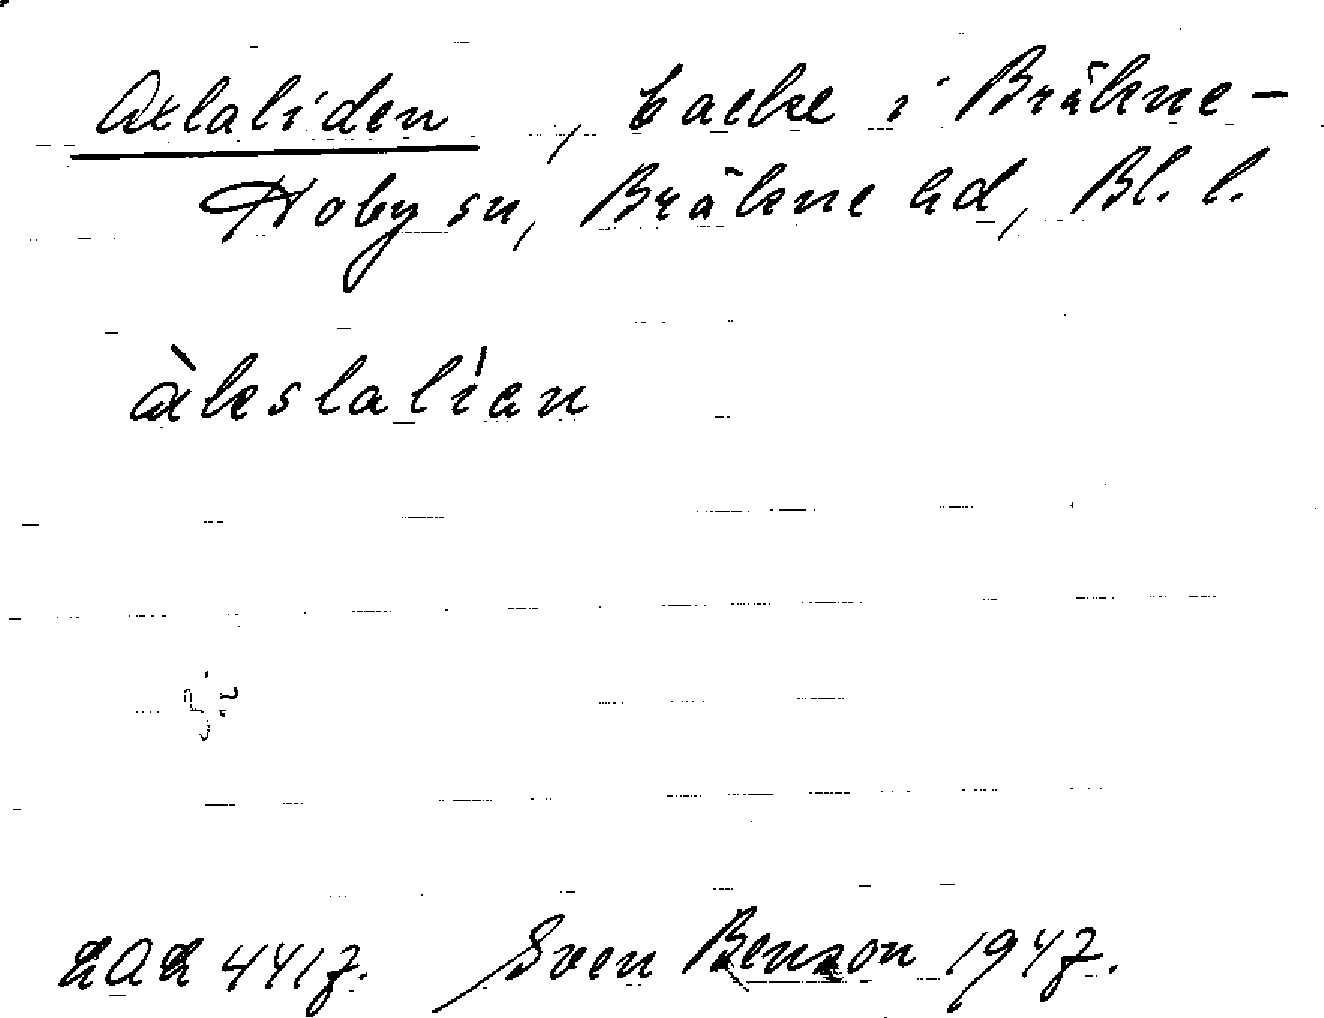 Axlaliden, backe i Bräkne-
Hoby sn, Bräkne hd, Bl. l.
àkslalían
LAL 4417. Sven Benson 1947.